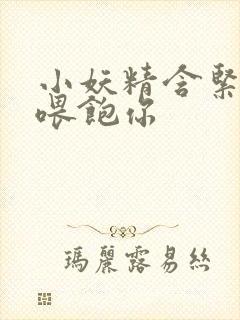 小妖精含緊
喂飽你
瑪麗露易絲